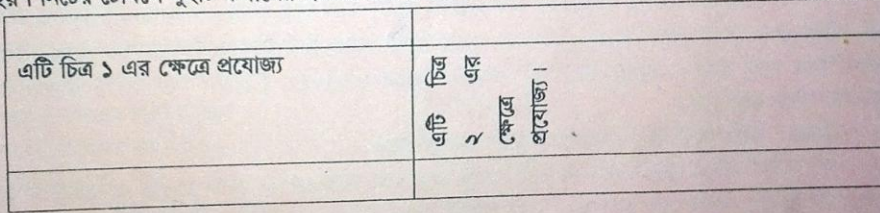 এটি চিত্র ১ এর ক্ষেত্রে প্রযোজ্য
এটি চিত্র
২ এর
ক্ষেত্রে
প্রযোজ্য।